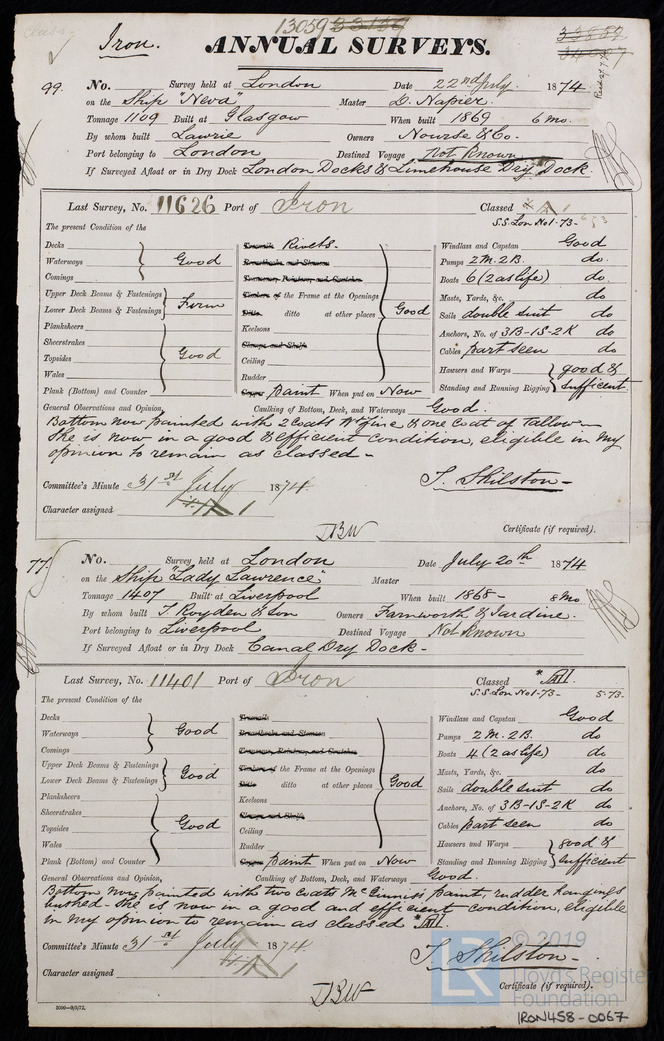 13059 33159
Iron.
ANNUAL SURVEYS.
99. No. Survey held at London Date 22nd July 1874
on the Ship "Neva" Master D. Napier.
Tonnage 1109 Built at Glasgow When built 1869 6 Mo.
By whom built Lawrie Owners Nourse & Co.
Port belonging to London Destined Voyage Not Known
If Surveyed Afloat or in Dry Dock London Docks & Limehouse Dry Dock.
Last Survey, No. 11626 Port of Iron Classed * A 1
S.S. Lon No1-73-
The present Condition of the
Decks
Waterways Good
Comings
Upper Deck Beams & Fastenings
Lower Deck Beams & Fastenings Firm
Planksheers
Sheerstrakes
Topsides Good
Wales
Plank (Bottom) and Counter
Treenails Rivets.
Breasthooks and Stemson
Transoms, Pointers, and Crutches
Timbers of the Frame at the Openings
Ditto ditto at other places Good
Keelsons
Clamps and Shelfs
Ceiling
Rudder
Copper Paint When put on Now
Windlass and Capstan Good
Pumps 2 M. 2 B. do.
Boats 6 (2 as life) do.
Masts, Yards, &c. do
Sails double suit do
Anchors, No. of 3B-1S-2K do
Cables part seen do
Hawsers and Warps good &
Standing and Running Rigging sufficient
General Observations and Opinion, Caulking of Bottom, Deck, and Waterways Good.
Bottom now painted with 2 Coats of Zinc & one Coat of Tallow -
She is now in a good & efficient condition, eligible in my
opinion to remain as classed -
Committee's Minute 31st July 1874. T. Shilston -
Character assigned A 1
Certificate (if required).
77 No. Survey held at London Date July 20th 1874
on the Ship "Lady Lawrence" Master
Tonnage 1407 Built at Liverpool When built 1868 - 8 Mo
By whom built T. Royden & Son Owners Farnworth & Jardine.
Port belonging to Liverpool Destined Voyage Not Known
If Surveyed Afloat or in Dry Dock Canal Dry Dock -
Last Survey, No. 11401 Port of Iron Classed
S.S. Lon No1-73- 5-73.
The present Condition of the
Decks
Waterways Good
Comings
Upper Deck Beams & Fastenings
Lower Deck Beams & Fastenings Good
Planksheers
Sheerstrakes
Topsides Good
Wales
Plank (Bottom) and Counter
Treenails
Breasthooks and Stemson
Transoms, Pointers, and Crutches
Timbers of the Frame at the Openings
Ditto ditto at other places Good
Keelsons
Clamps and Shelfs
Ceiling
Rudder
Copper Paint When put on Now
Windlass and Capstan Good
Pumps 2 M. 2 B. do
Boats 4 (2 as life) do
Masts, Yards, &c. do
Sails double suit do
Anchors, No. of 3B-1S-2K do
Cables part seen do
Hawsers and Warps good &
Standing and Running Rigging sufficient
General Observations and Opinion, Caulking of Bottom, Deck, and Waterways Good.
Bottom now painted with two Coats McGinnis's paint, rudder hangings
bushed - She is now in a good and efficient condition, eligible
in my opinion to remain as classed
Committee's Minute 31st July 1874. T. Shilston -
Character assigned
Certificate (if required).
© 2019
LR Lloyd's Register
Foundation
IRON458-0067